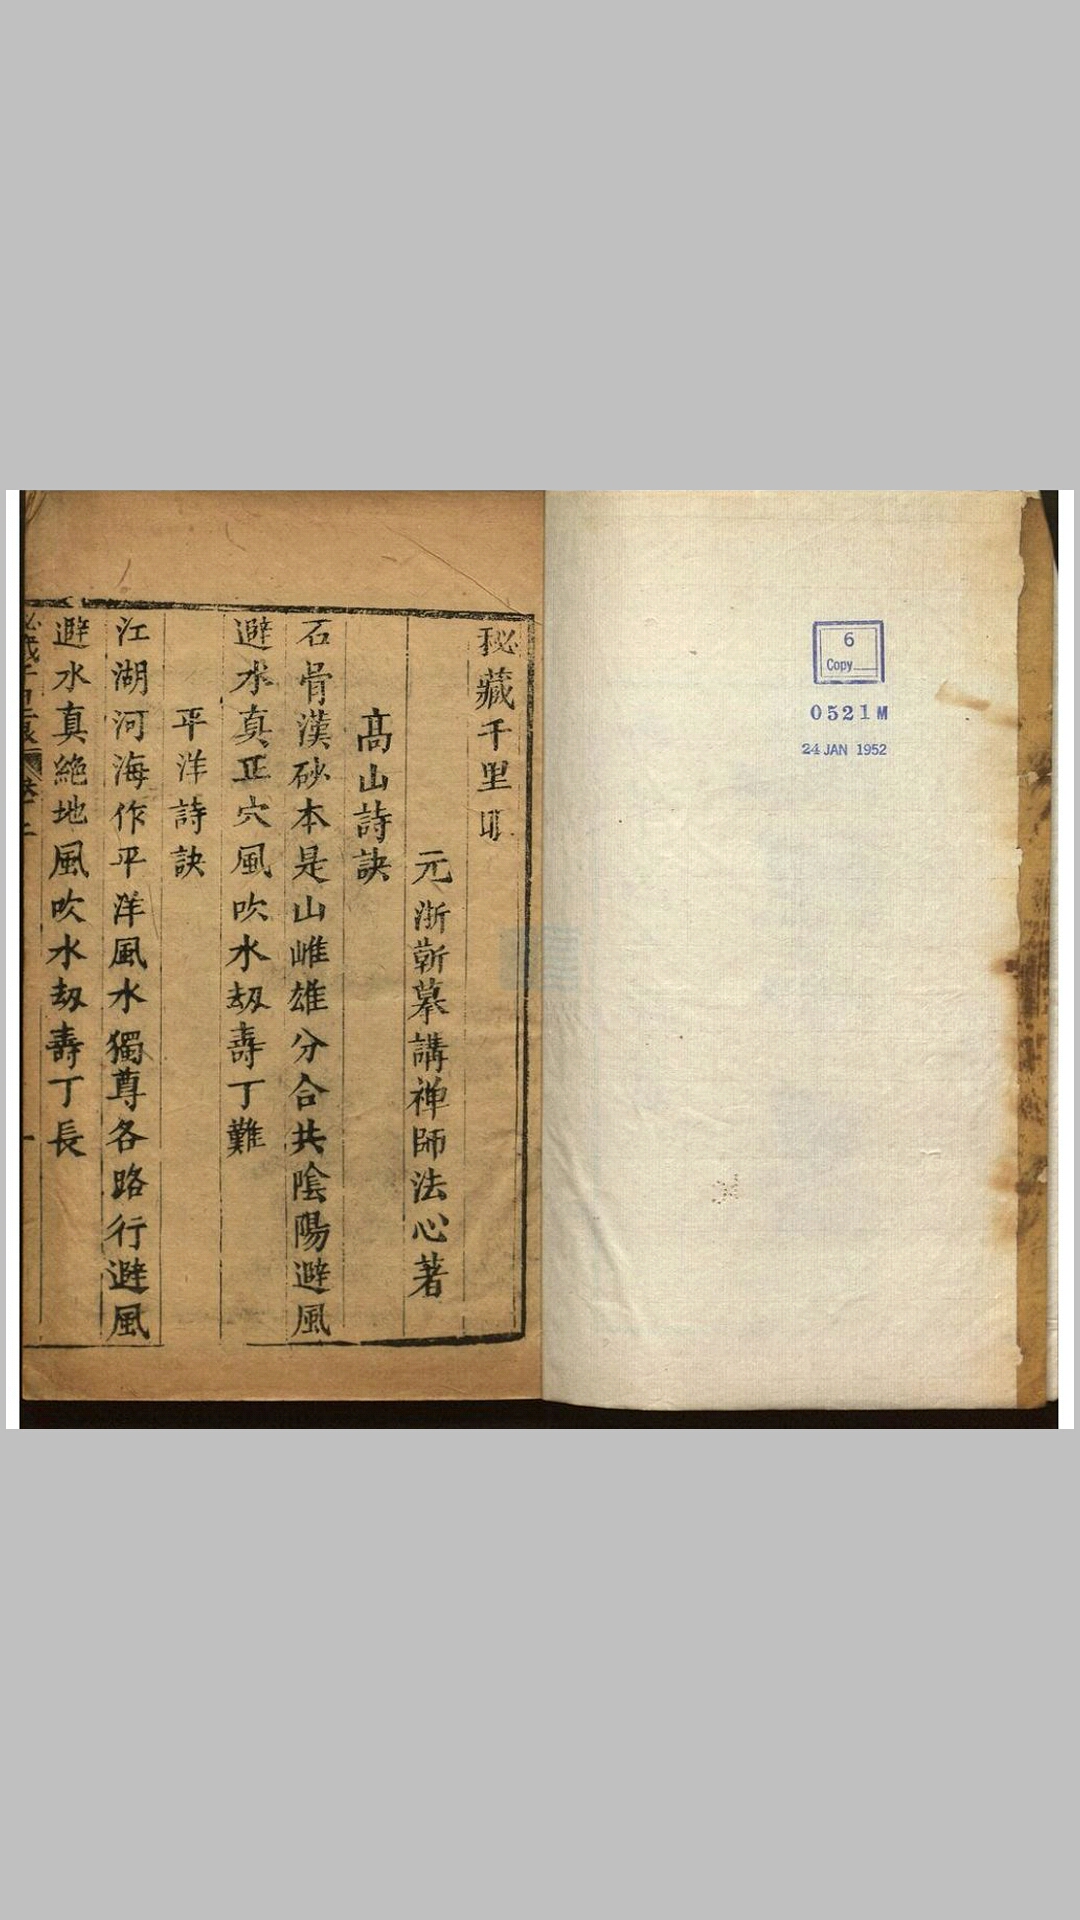 秘藏千里眼
元浙蘄摹講禅師法心著
髙山詩訣
石骨漢砂本是山雌雄分合共陰陽避風
避水真正穴風吹水劫壽丁難
平洋詩訣
江湖河海作平洋風水獨尊各路行避風
避水真絶地風吹水劫壽丁長
6
Copy
0521M
24 JAN 1952